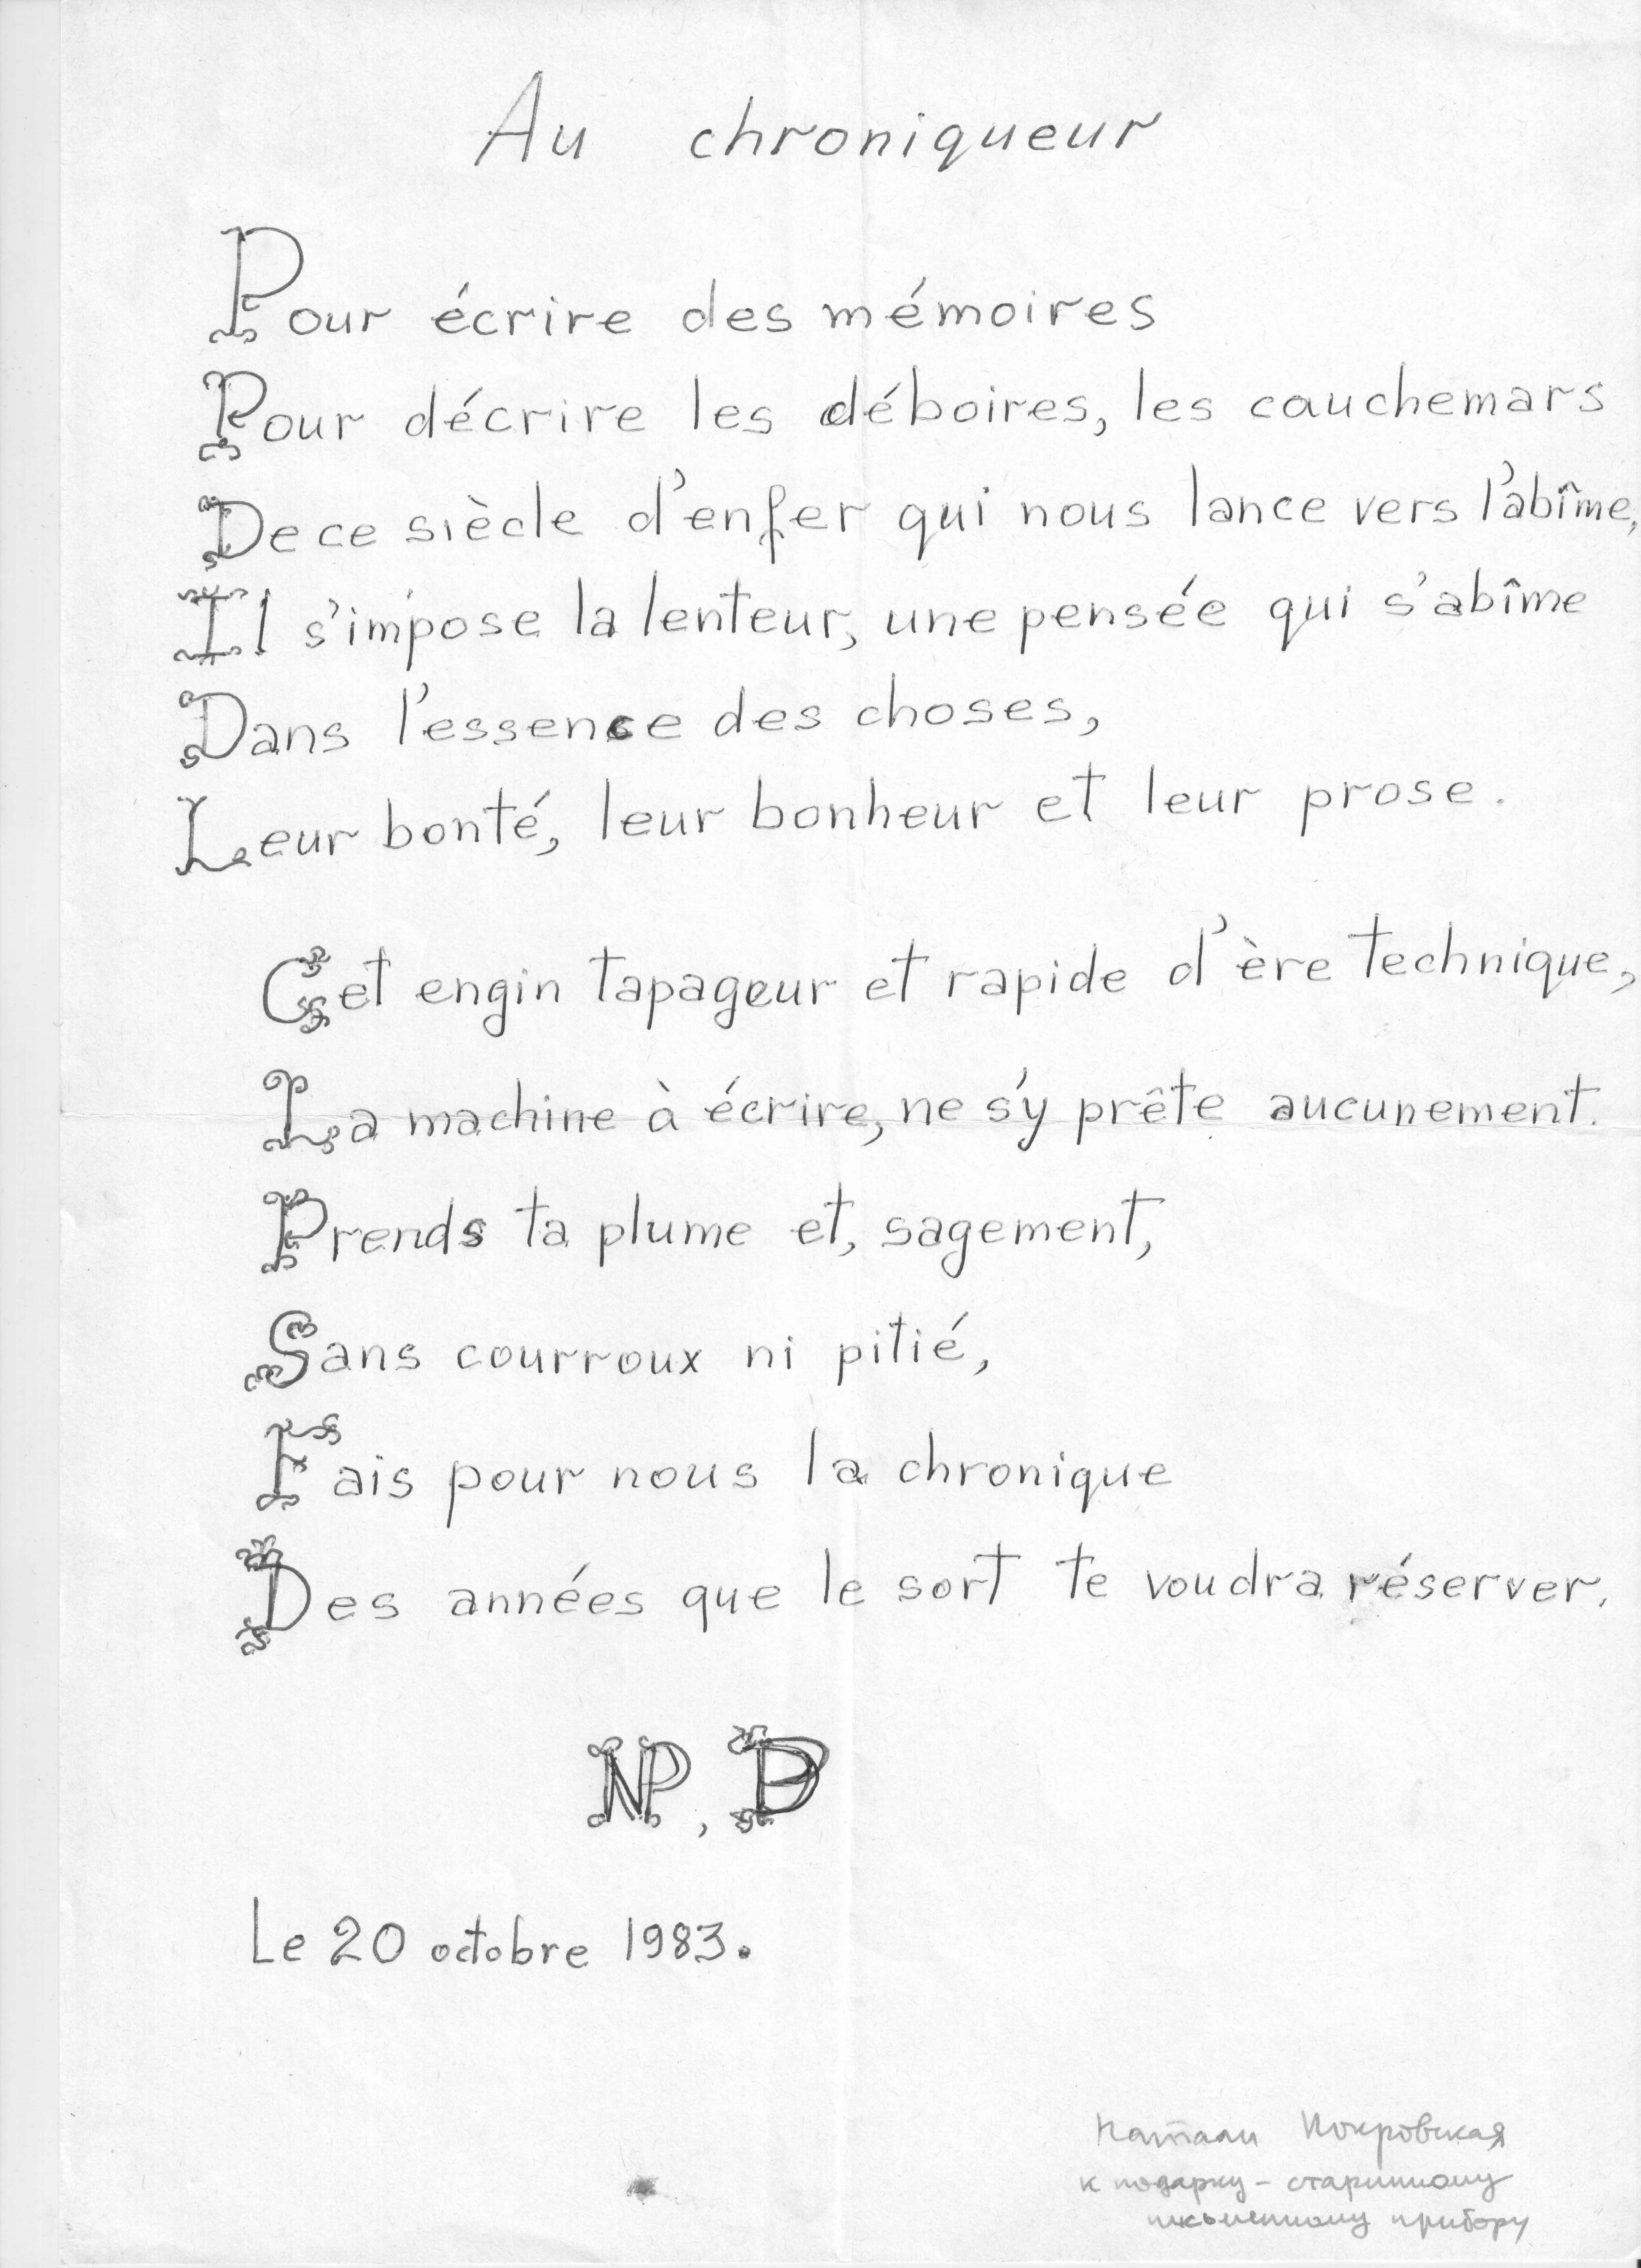 Au chroniqueur
Pour écrire des mémoires
Pour décrire les déboires, les cauchemars
De ce siècle d'enfer qui nous lance vers l'abîme,
Il s'impose la lenteur, une pensée qui s'abîme
Dans l'essence des choses,
Leur bonté, leur bonheur et leur prose.
Cet engin tapageur et rapide d'ère technique,
La machine à écrire, ne s'y prête aucunement.
Prends ta plume et, sagement,
Sans courroux ni pitié,
Fais pour nous la chronique
Des années que le sort te voudra réserver.
NP,
Le 20 octobre 1983.
Натали Покровская
к подарку – старинному
письменному прибору